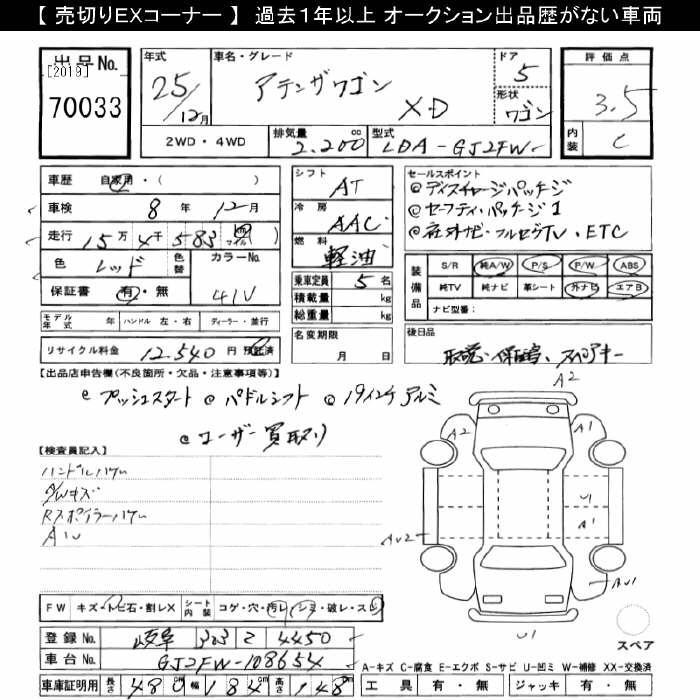 【 売切りEXコーナー 】 過去1年以上 オークション出品歴がない車両
出品No.
[2019]
70033
年式
25/12月
車名・グレード
アテンザワゴン
XD
ドア
5
形状
ワゴン
評価点
3.5
内装
C
2WD・4WD
排気量
2.200 cc
型式
LDA-GJ2FW
車歴 自家用・( )
車検 8年 12月
走行 15万 4千 583 (km マイル)
色 レッド
色替
カラーNo.
41V
保証書 有・無
モデル年式 年 ハンドル 左・右 ディーラー・並行
リサイクル料金 12.540 円 預託済
シフト
AT
冷房
AAC
燃料
軽油
乗車定員 5 名
積載量 kg
総重量 kg
名変期限
月 日
セールスポイント
@ディスチャージパッケージ
@セーフティ・パッケージ1
@社外ナビ・フルセグTV・ETC
装備品
S/R 純A/W P/S P/W ABS
純TV 純ナビ 革シート 外ナビ エアB
ナビ型番:
後日品
取説・保証書、スペアキー
【出品店申告欄(不良箇所・欠品・注意事項等)】
@プッシュスタート @パドルシフト @19インチアルミ
@ユーザー買取り
【検査員記入】
ハンドルハゲ
A/Wキズ
Rスポイラーハゲ
A1U
A2
A2
A1
U1
A1
AU2
AU1
U1
スペア
FW キズ・トビ石・割レX シート内装 コゲ・穴・汚レ・シミ・破レ・スレ
登録No. 岐阜 303 そ 4450
車台No. GJ2FW-108654
車庫証明用 長さ 480cm 幅 184cm 高さ 148cm
A-キズ C-腐食 E-エクボ S-サビ U-凹ミ W-補修 XX-交換済
工具 有・無 ジャッキ 有・無